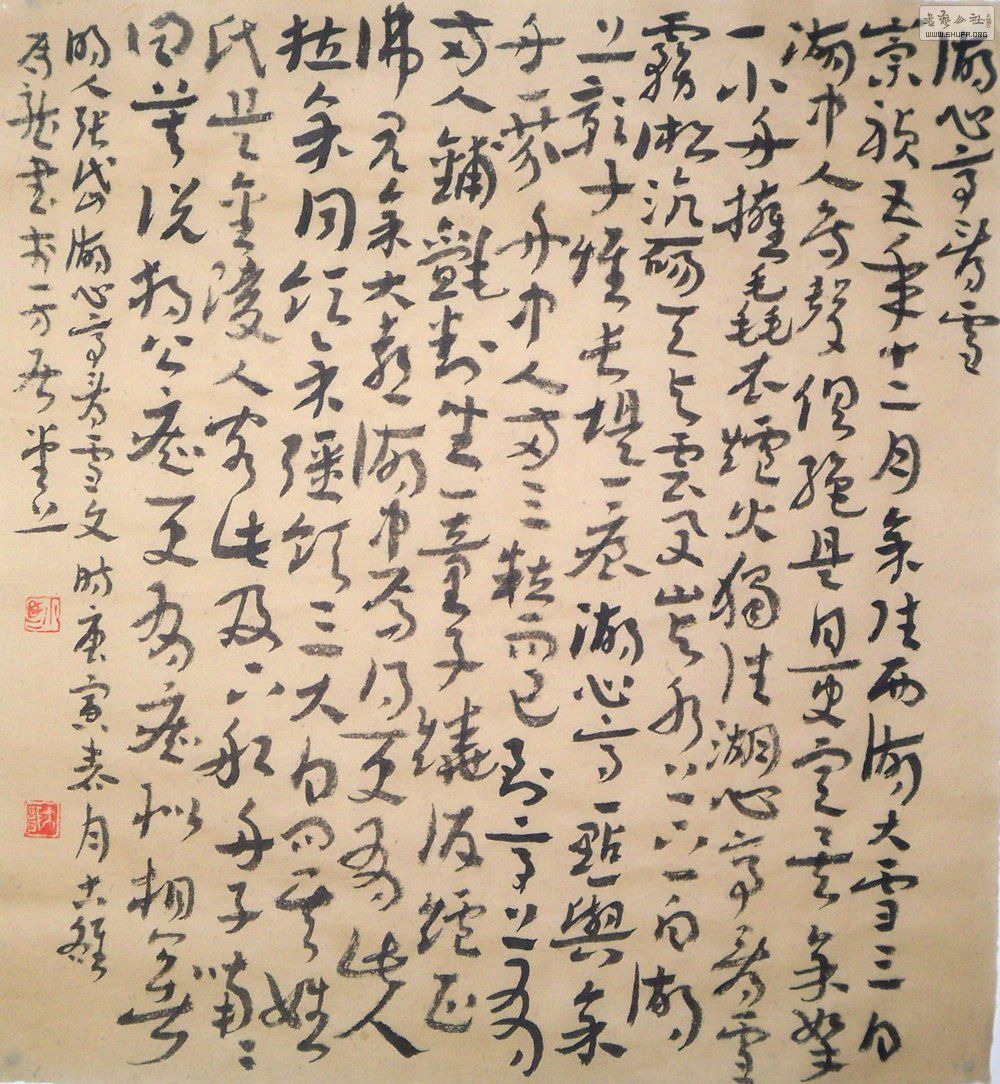 湖心亭看雪
崇祯五年十二月余住西湖大雪三日
湖中人鸟聲俱絶是日更定矣余拏
一小舟擁毳衣爐火獨往湖心亭看雪
霧凇沆碭天与雲与山与水上下一白湖
上影子惟長堤一痕湖心亭一點與余
舟一芥舟中人两三粒而已到亭上有
两人鋪氈對坐一童子燒酒爐正
沸見余大喜湖中焉得更有此人
拉余同飲余彊飲三大白问其姓
氏是金陵人客此及下船舟子喃々
曰莫說相公痴更有痴似相公者
明人張岱湖心亭看雪文時庚寅春月古雄
書於一方
书艺公社
WWW.SHUFA.ORG